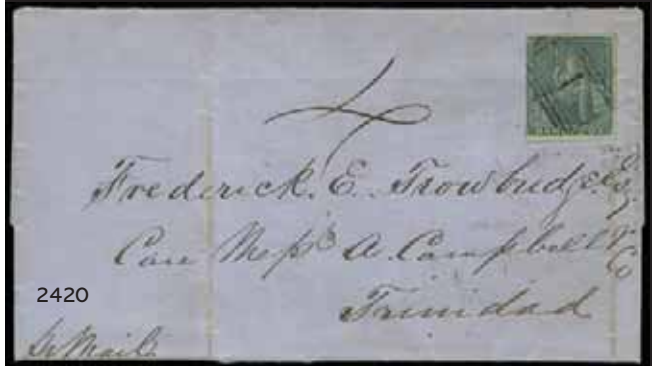 4
Frederick. E. Trowbridge Esq
Care Messrs A. Campbell & Co
Trinidad
2420
pr Mail